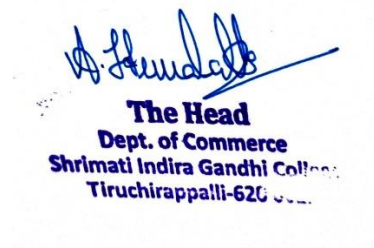 The Head
Dept. of Commerce
Shrimati Indira Gandhi
Tiruchirappalli-620